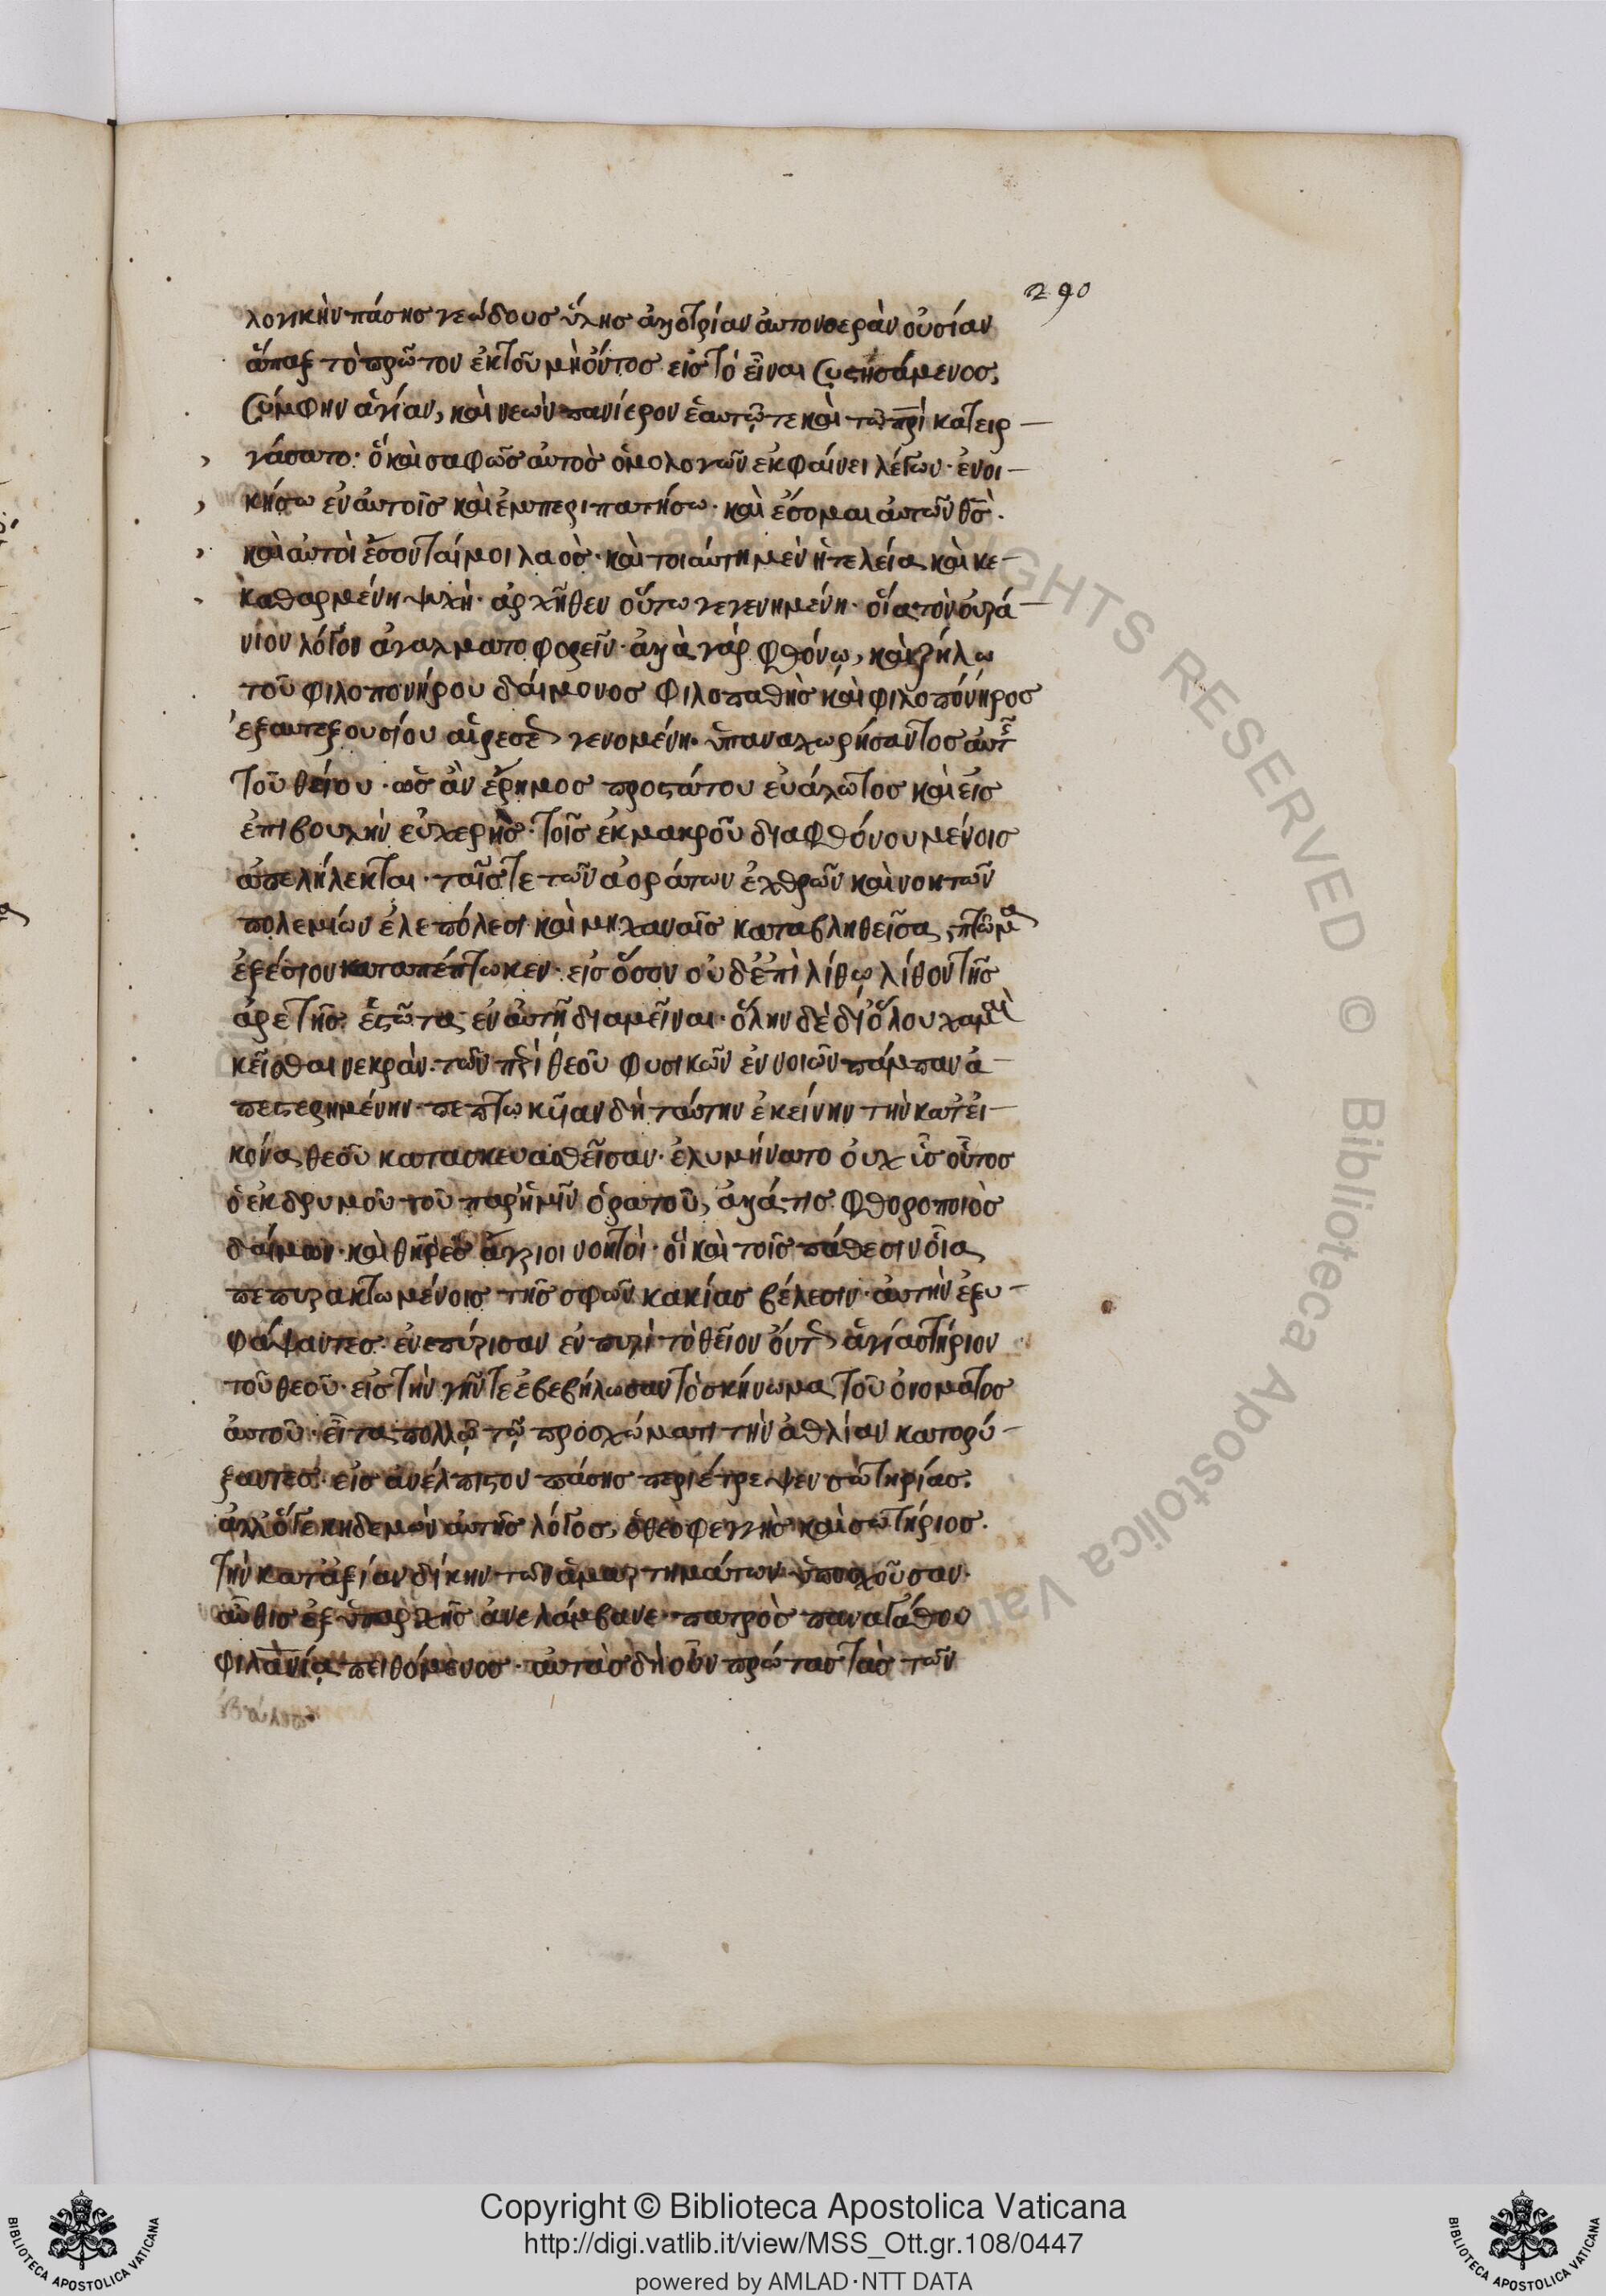 290
λογικὴν πάσης γεώδους ὕλης ἀλλοτρίαν αὐτονοερὰν οὐσίαν
ἅπαξ τὸ πρῶτον ἐκ τοῦ μὴ ὄντος εἰς τὸ εἶναι συστησάμενος,
νύμφην ἁγίαν, καὶ νεὼν πανίερον ἑαυτῷ τε καὶ τῷ πρὶ κατειρ
γάσατο· ὃ καὶ σαφῶς αὐτὸς ὁμολογῶν ἐκφαίνει λέγων· ἐνοι
κήσω ἐν αὐτοῖς καὶ ἐμπεριπατήσω· καὶ ἔσομαι αὐτῶν θς·
καὶ αὐτοὶ ἔσονταί μοι λαός· καὶ τοιαύτη μὲν ἡ τελεία καὶ κε
καθαρμένη ψυχή· ἀρχῆθεν οὕτω γεγενημένη· οἵα τὸν οὐρά
νιον λόγον ἀγαλματοφορεῖν· ἀλλὰ γὰρ φθόνῳ, καὶ ζήλῳ
τοῦ φιλοπονήρου δαίμονος φιλοπαθὴς καὶ φιλοπόνηρος
ἐξ αὐτεξουσίου αἱρέσεως γενομένη· ὑπαναχωρήσαντος αὐτῆς
τοῦ θείου· ὡς ἂν ἔρημος προστάτου εὐάλωτος καὶ εἰς
ἐπιβουλὴν εὐχερὴς· τοῖς ἐκ μακροῦ διαφθονουμένοις
ἀπελήλεκται· ταῖς τε τῶν ἀοράτων ἐχθρῶν καὶ νοητῶν
πολεμίων ἑλεπόλεσι καὶ μηχαναῖς καταβληθεῖσα, πτῶμα
ἐξέσιον καταπέπτωκεν· εἰς ὅσον οὐδ' ἐπὶ λίθῳ λίθον τῆς
ἀρετῆς ἑστῶτα ἐν αὐτῇ διαμεῖναι· ὅλην δὲ δι' ὅλου χαμαὶ
κεῖσθαι νεκρὰν· τῶν περὶ θεοῦ φυσικῶν ἐννοιῶν πάμπαν ἀ
πεστερημένην· πεπτωκυῖαν δὴ ταύτην ἐκείνην τὴν κατ' εἰ
κόνα θεοῦ κατασκευασθεῖσαν· ἐλυμήνατο οὐχ ὗς οὗτος
ὁ ἐκ δρυμοῦ τοῦ παρ' ἡμῖν ὁρατοῦ, ἀλλά τις φθοροποιὸς
δαίμων· καὶ θῆρες ἄγριοι νοητοὶ· οἳ καὶ τοῖς πάθεσιν οἷα
πεπυρακτωμένοις τῆς σφῶν κακίας βέλεσιν· αὐτὴν ἐξυ
φάψαντες· ἐνεπύρισαν ἐν πυρὶ τὸ θεῖον ὄντως ἁγιαστήριον
τοῦ θεοῦ· εἰς τὴν γῆν τε ἐβεβήλωσαν τὸ σκήνωμα τοῦ ὀνόματος
αὐτοῦ· εἶτα πολλῷ τῷ προσχώματι τὴν ἀθλίαν κατορύ
ξαντες· εἰς ἀνέλπιστον πάσης περιέτρεψεν σωτηρίας·
ἀλλ' ὅ γε κηδεμὼν αὐτῆς λόγος, ὁ θεοφεγγὴς καὶ σωτήριος·
τὴν κατ' ἀξίαν δίκην τῶν ἁμαρτημάτων ὑποσχοῦσαν·
αὖθις ἐξ ὑπαρχῆς ἀνελάμβανε· πατρὸς παναγάθου
φιλανίᾳ πειθόμενος· αὐτὰς δὴ οὖν πρώτας τὰς τῶν
Copyright © Biblioteca Apostolica Vaticana
http://digi.vatlib.it/view/MSS_Ott.gr.108/0447
powered by AMLAD·NTT DATA
BIBLIOTECA APOSTOLICA VATICANA
BIBLIOTECA APOSTOLICA VATICANA
RIGHTS RESERVED © Biblioteca Apostolica Vaticana